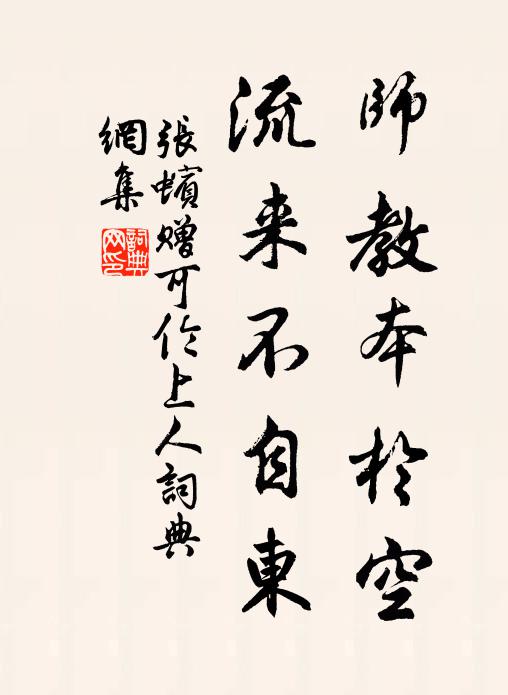 師教本於空
流来不自東
張蠙贈可伦上人詞典
網集
詞典
网印